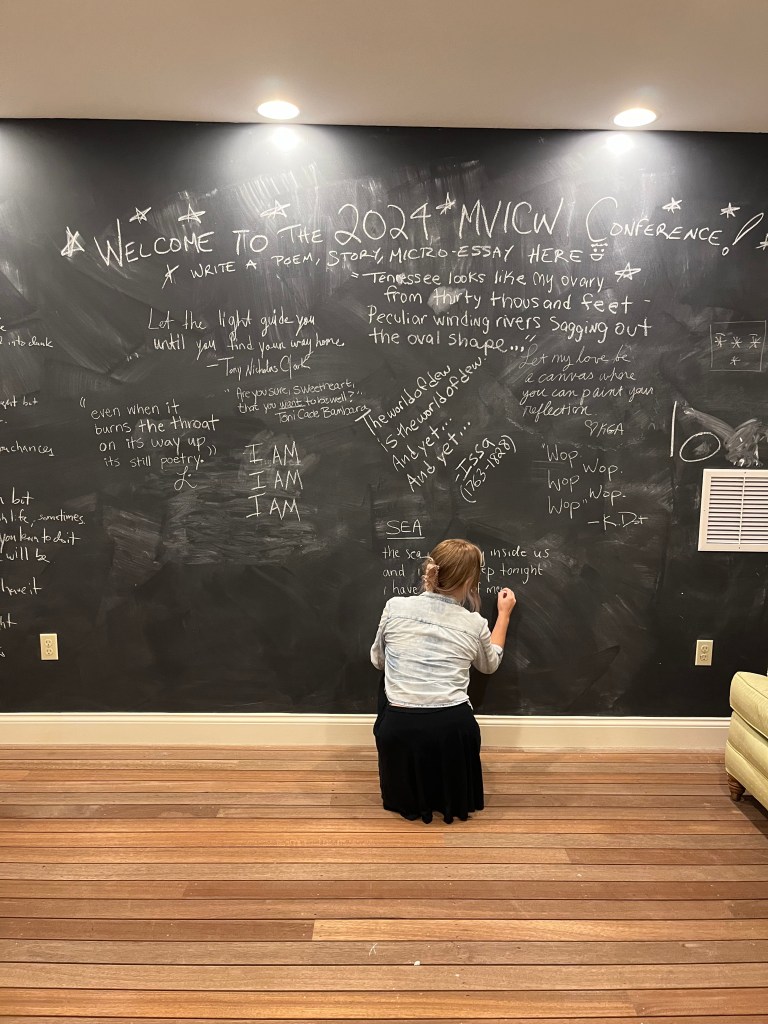 WELCOME TO THE 2024 MVICW CONFERENCE!
* WRITE A POEM, STORY, MICRO-ESSAY HERE
"Tennessee looks like my ovary
from thirty thousand feet -
Peculiar winding rivers sagging out
the oval shape..."
Let the light guide you
until you find your way home.
- Tony Nicholas Clark
"Are you sure, sweetheart,
that you want to be well?"
Toni Cade Bambara
"even when it
burns the throat
on its way up,
its still poetry."
L.
I AM
I AM
I AM
The world of dew
is the world of dew.
And yet...
And yet...
- Issa
(1763-1828)
Let my love be
a canvas where
you can paint your
reflection
"Wop
Wop.
Wop
Wop.
Wop"
- K. Dot
SEA
the sea inside us
and tonight
i have
into dark
but
chances
but
life, sometimes
you learn to do it
will be